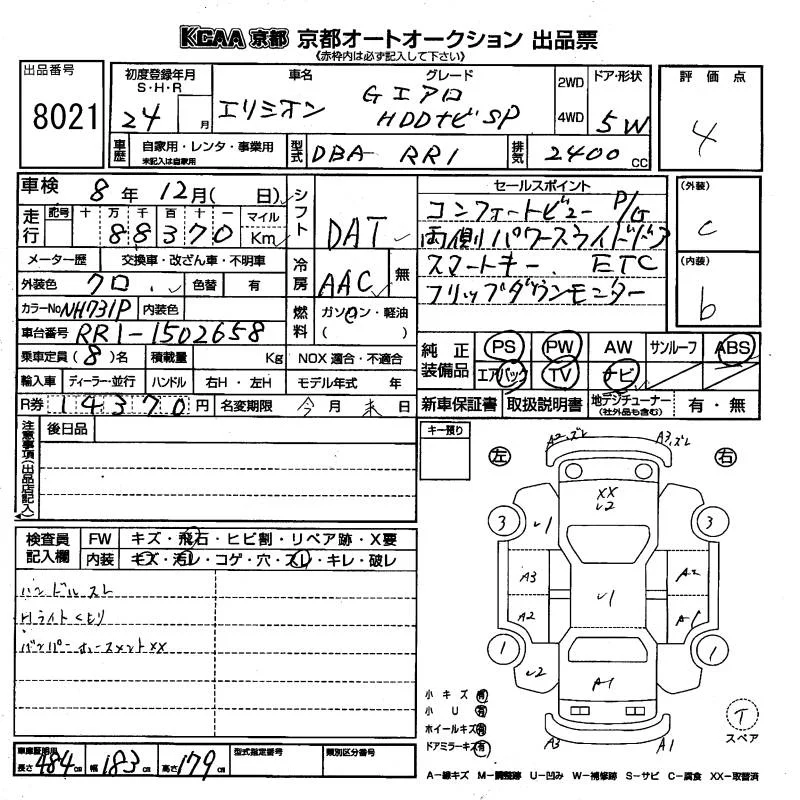 KCAA 京都 京都オートオークション 出品票
《赤枠内は必ず記入して下さい》
出品番号
8021
初度登録年月
S・H・R
24 月
車名
エリシオン
グレード
G エアロ
HDDナビ SP
2WD
4WD
ドア・形状
5W
評価点
4
車歴
自家用・レンタ・事業用
未記入は自家用
型式
DBA- RR1
排気
2400 cc
車検 8年 12月( 日)
シフト
DAT
セールスポイント
コンフォートビュー P/G
両側パワースライドドア
スマートキー. ETC
フリップダウンモニター
(外装)
C
(内装)
b
走行
記号 十 万 千 百 十 一
88370
マイル
Km
メーター歴 交換車・改ざん車・不明車
冷房
AAC 無
外装色 クロ. 色替 有
カラーNo NH731P 内装色
燃料
ガソリン・軽油
( )
車台番号 RR1-1502658
乗車定員(8)名 積載量 Kg NOX 適合・不適合
輸入車 ディーラー・並行 ハンドル 右H・左H モデル年式 年
R券 14370円 名変期限 今月末日
純正装備品
PS PW AW サンルーフ ABS
エアバック TV ナビ
新車保証書 取扱説明書 地デジチューナー(社外品も含む) 有・無
注意事項(出品店記入)
後日品
キー預り
左 右
A2,ズレ A3,ズレ
XX
3 3
A3 A2
A2
1 1
A1
A3 A1
検査員記入欄
FW キズ・飛石・ヒビ割・リペア跡・X要
内装 キズ・汚レ・コゲ・穴・スレ・キレ・破レ
ハンドルスレ
Hライトくもり
小キズ 有
小U 有
ホイールキズ 有
ドアミラーキズ 有
T
スペア
長さ 484cm 幅 183cm 高さ 179cm
型式指定番号
類別区分番号
A−線キズ M−調整跡 U−凹み W−補修跡 S−サビ C−腐食 XX−取替済